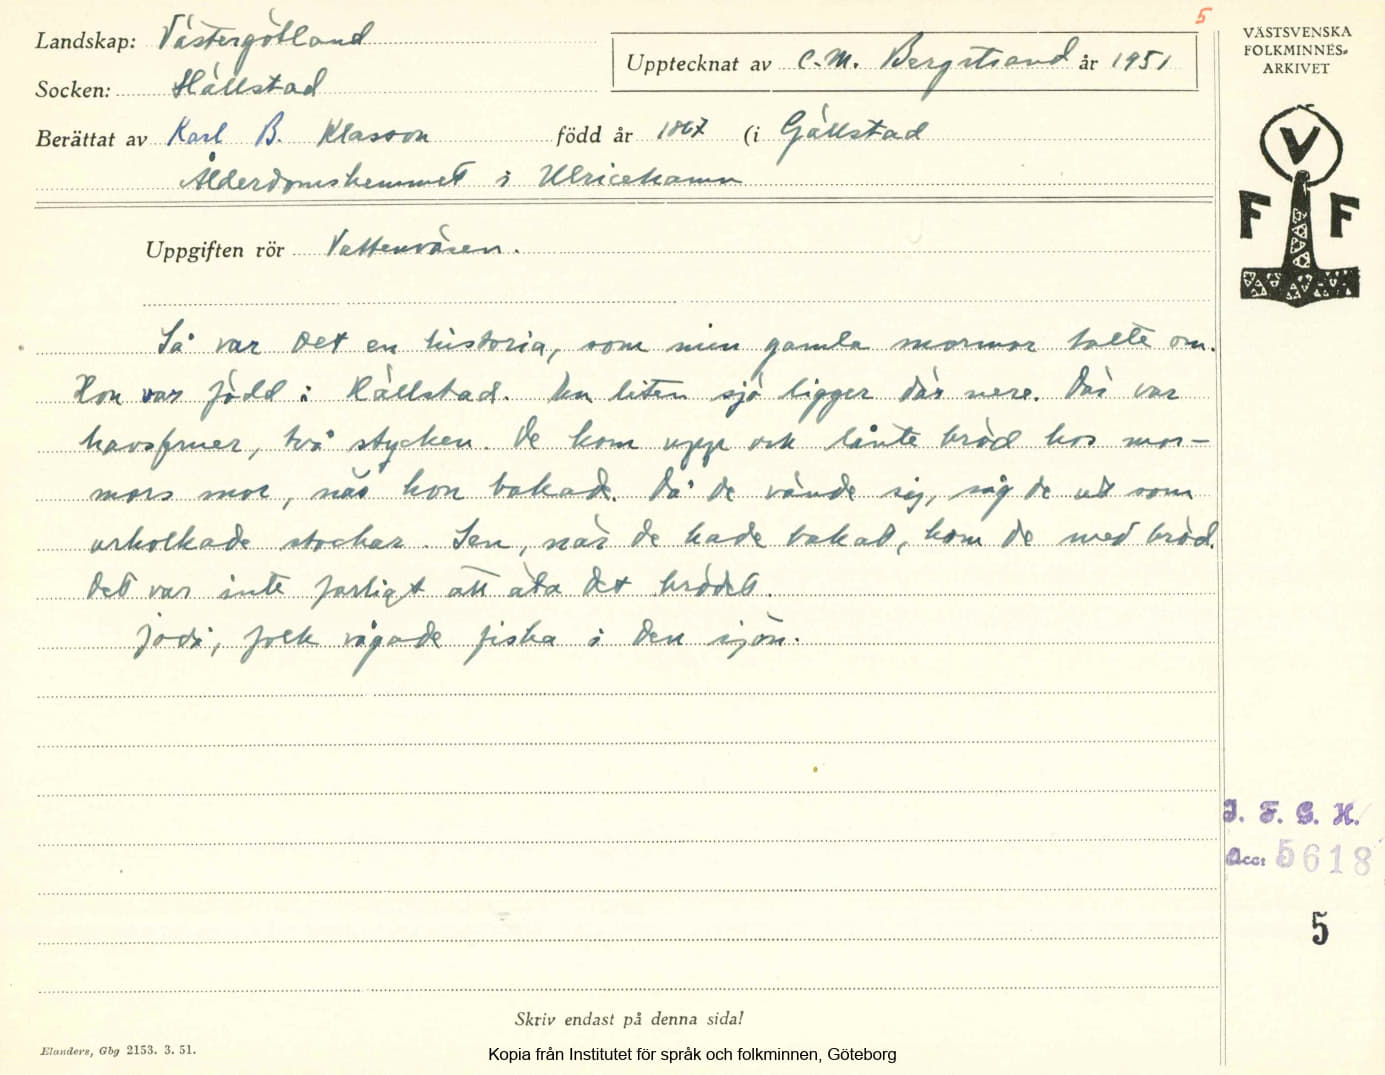 5
Landskap: Västergötland
Upptecknat av C.M. Bergstrand år 1951
VÄSTSVENSKA
FOLKMINNES-
ARKIVET
Socken: Hällstad
Berättat av Karl B. Klasson född år 1867 (i Gällstad
Ålderdomshemmet i Ulricehamn
V
F F
Uppgiften rör Vattenväsen.
Så var det en historia, som min gamla mormor talte om.
Hon var född i Hällstad. En liten sjö ligger där nere. Där var
havsfruer, två stycken. De kom upp ock lånte bröd hos mor-
mors mor, när hon bakade. Då de vände sig, såg de ut som
urholkade stockar. Sen, när de hade bakat, kom de med bröd.
Det var inte farligt att äta det brödet.
Jodå, folk vågade fiska i den sjön.
I. F. G. H.
Acc: 5618
5
Skriv endast på denna sida!
Elanders, Gbg 2153. 3. 51.
Kopia från Institutet för språk och folkminnen, Göteborg